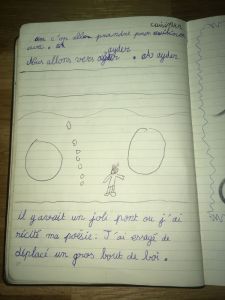 cuisiner
on c'op allon prandre pour
avec. et
ayder
Nous allons vers. et ayder
il y avait un joli pont ou j'ai
récité ma poésie. J'ai essayé de
déplacé un gros bout de boi.